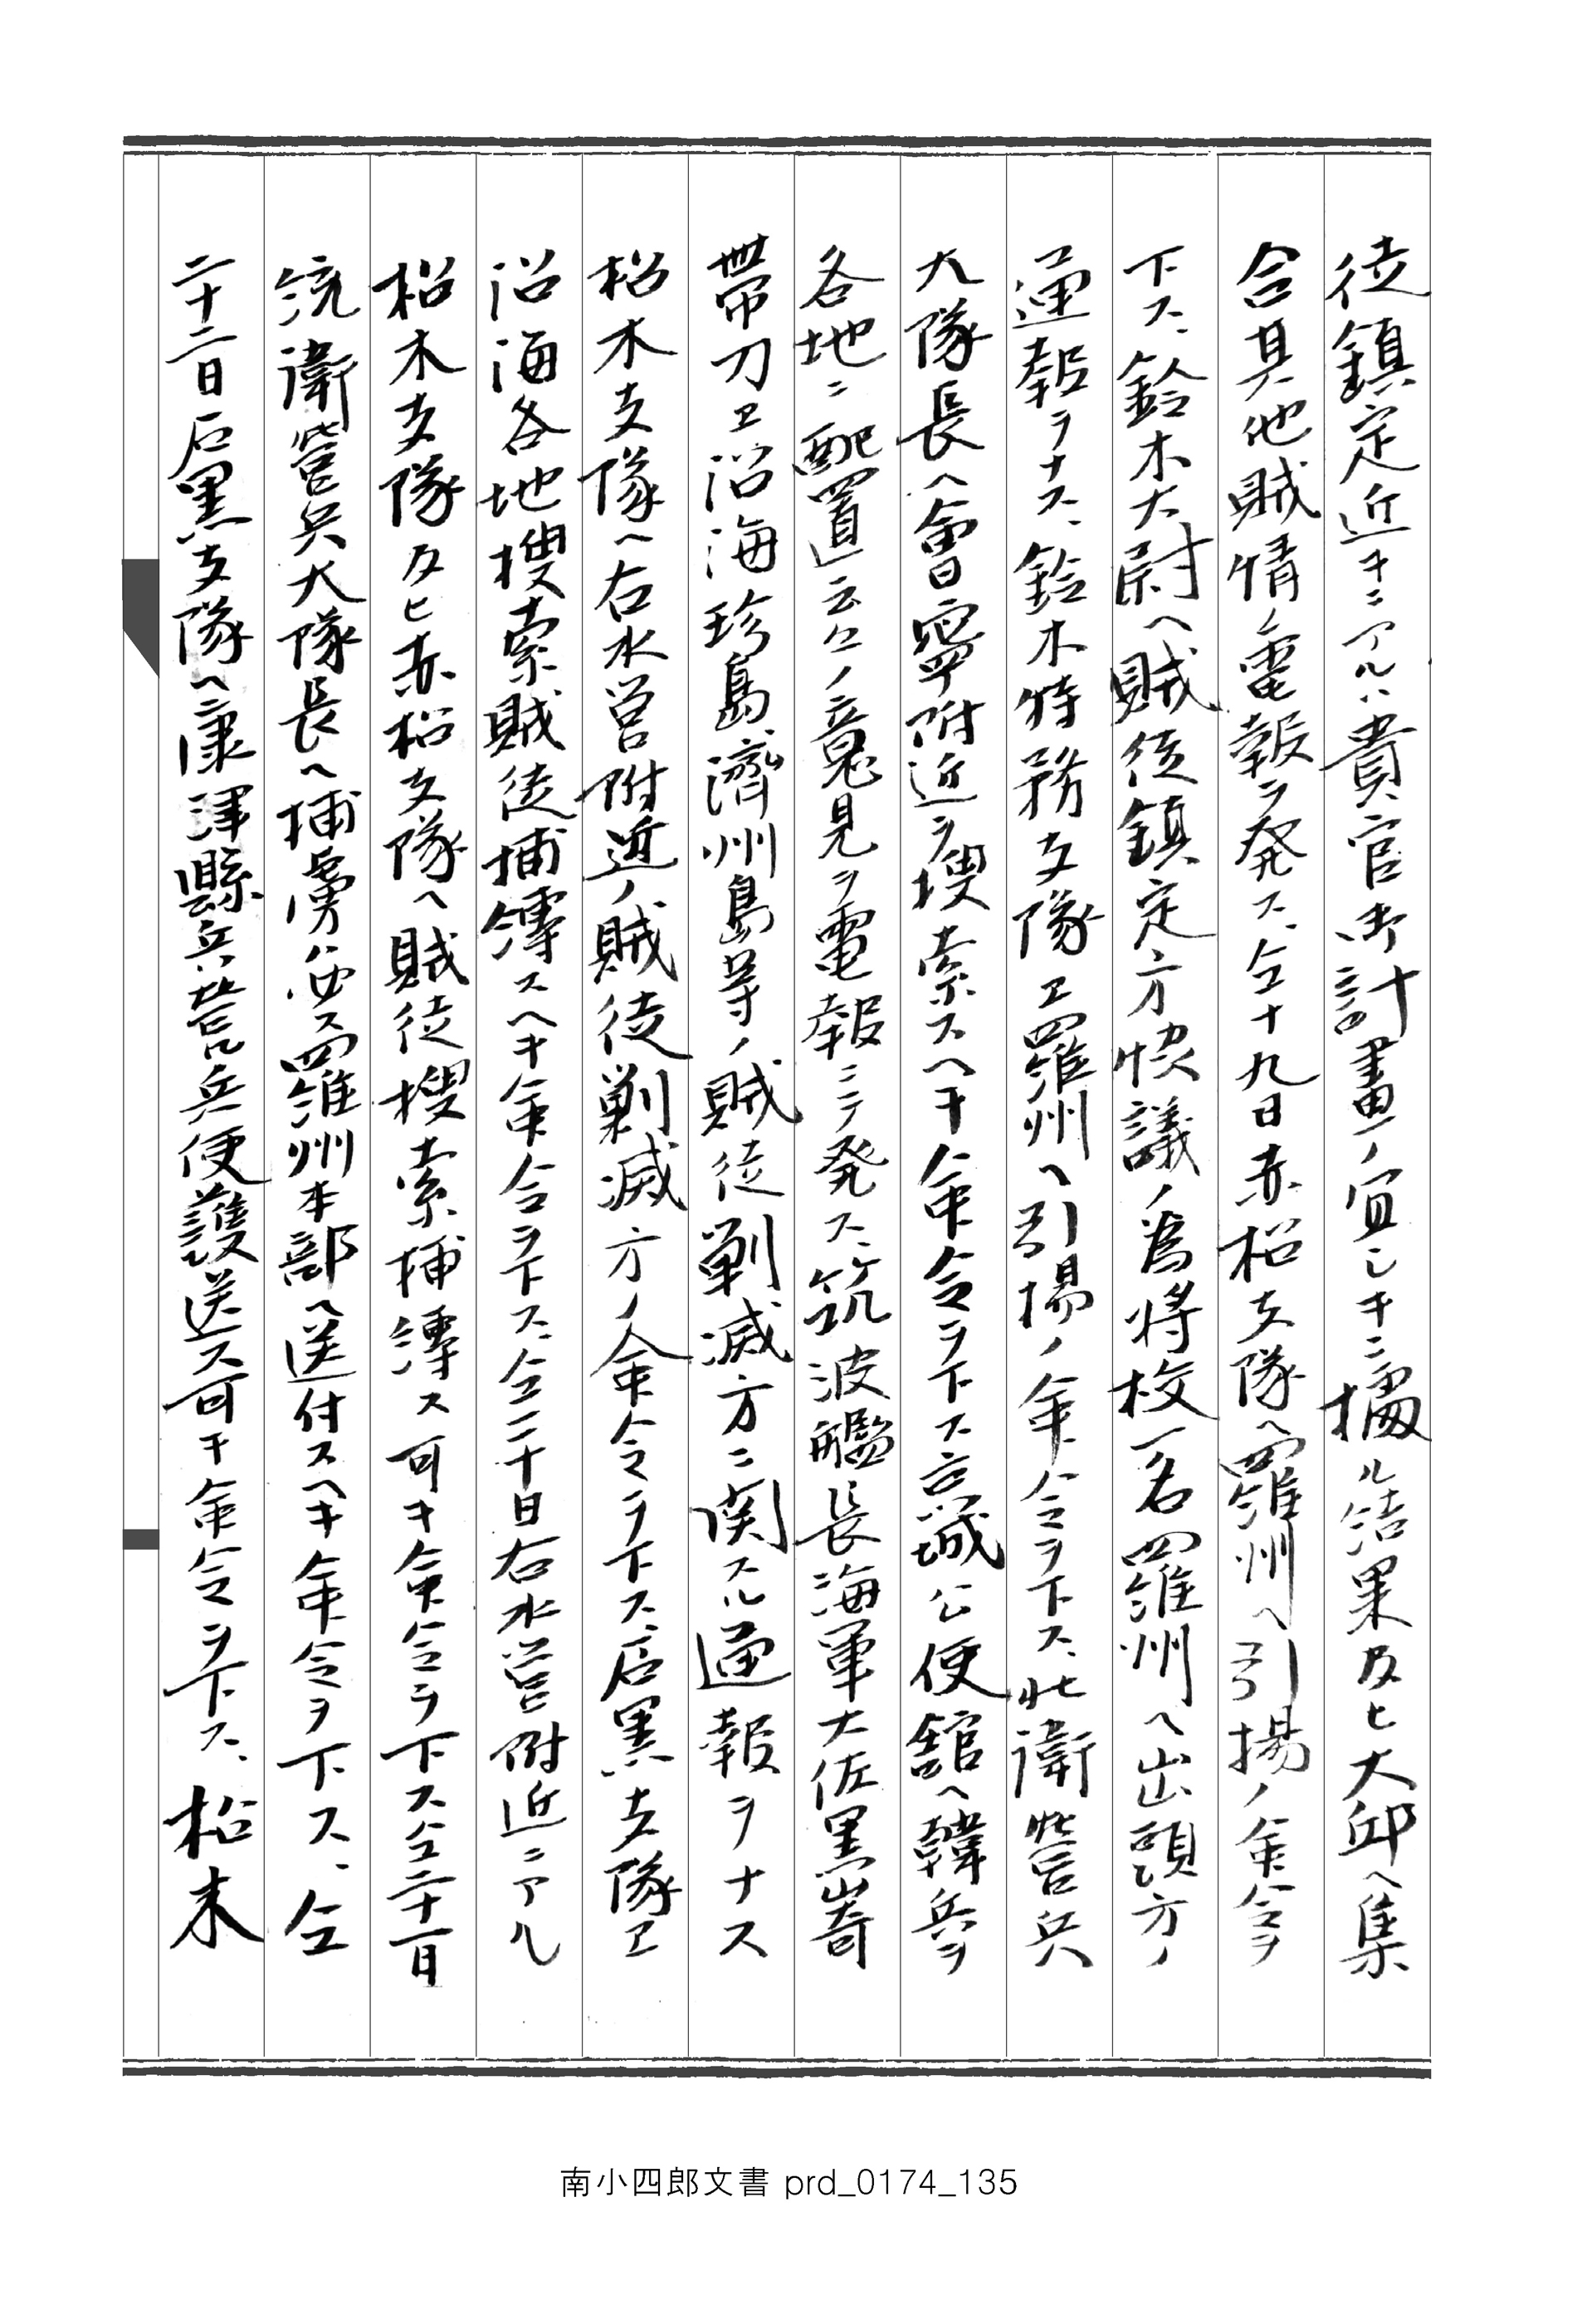 徒鎮定近キニアルハ貴官御計畫ノ宜シキニ據ル結果及ヒ大邱ヘ集
合其他賊情ノ電報ヲ発ス、仝十九日赤松支隊ヘ羅州ヘ引揚ノ命令ヲ
下ス、鈴木大尉ヘ賊徒鎮定方快議ノ為将校一名羅州ヘ出頭方ノ
通報ヲナス、鈴木特務支隊エ羅州ヘ引揚ノ命令ヲ下ス、壮衛営兵
大隊長ヘ會寧附近ヲ搜索スヘキ命令ヲ下ス京城公使舘ヘ韓兵ヲ
各地ニ配置云々ノ意見ヲ電報ニテ発ス、筑波艦長海軍大佐黒嵜
帯刀エ沿海珍島濟州島等ノ賊徒剿滅方ニ関スル通報ヲナス
松木支隊ヘ右水営附近ノ賊徒剿滅方ノ命令ヲ下ス、石黒支隊エ
沿海各地搜索賊徒捕縛スヘキ命令ヲ下ス、仝二十日右水営附近ニアル
松木支隊及ヒ赤松支隊ヘ賊徒搜索捕縛ス可キ命令ヲ下ス仝二十一日
統衛営兵大隊長ヘ捕虜必ス羅州本部ヘ送付スヘキ命令ヲ下ス、仝
二十二日石黒支隊ヘ康津縣兵営兵便護送ス可キ命令ヲ下ス、松木
南小四郎文書 prd_0174_135